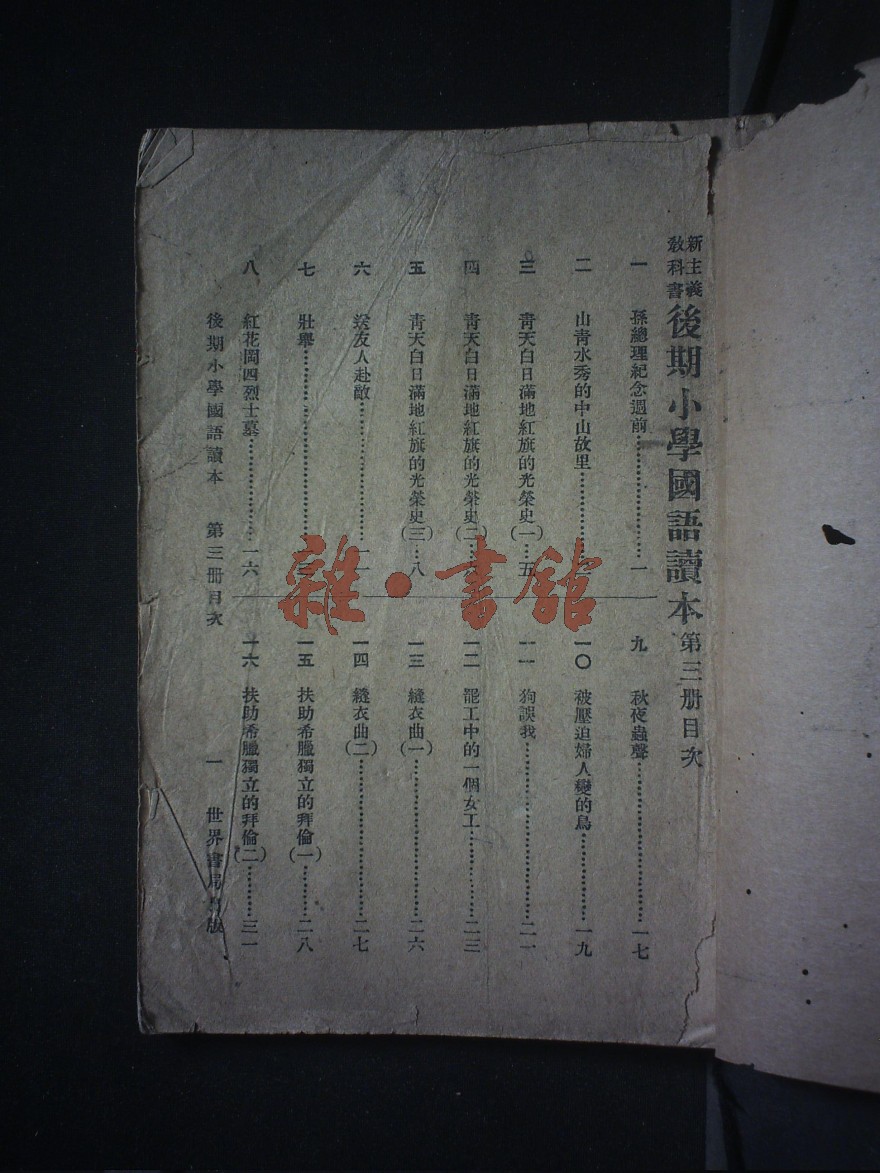 新主義教科書 後期小學國語讀本 第三册目次
一 孫總理紀念週前……一
二 山青水秀的中山故里……
三 青天白日滿地紅旗的光榮史(一)…五
四 青天白日滿地紅旗的光榮史(二)
五 青天白日滿地紅旗的光榮史(三)…八
六 送友人赴敵……
七 壯舉……
八 紅花岡四烈士墓……一六
九 秋夜蟲聲……一七
一〇 被壓迫婦人變的鳥……一九
一一 狗誤我……二一
一二 罷工中的一個女工……二三
一三 縫衣曲(一)……二六
一四 縫衣曲(二)……二七
一五 扶助希臘獨立的拜倫(一)……二八
一六 扶助希臘獨立的拜倫(二)……三一
後期小學國語讀本 第三册目次 一 世界書局版
雜·書館